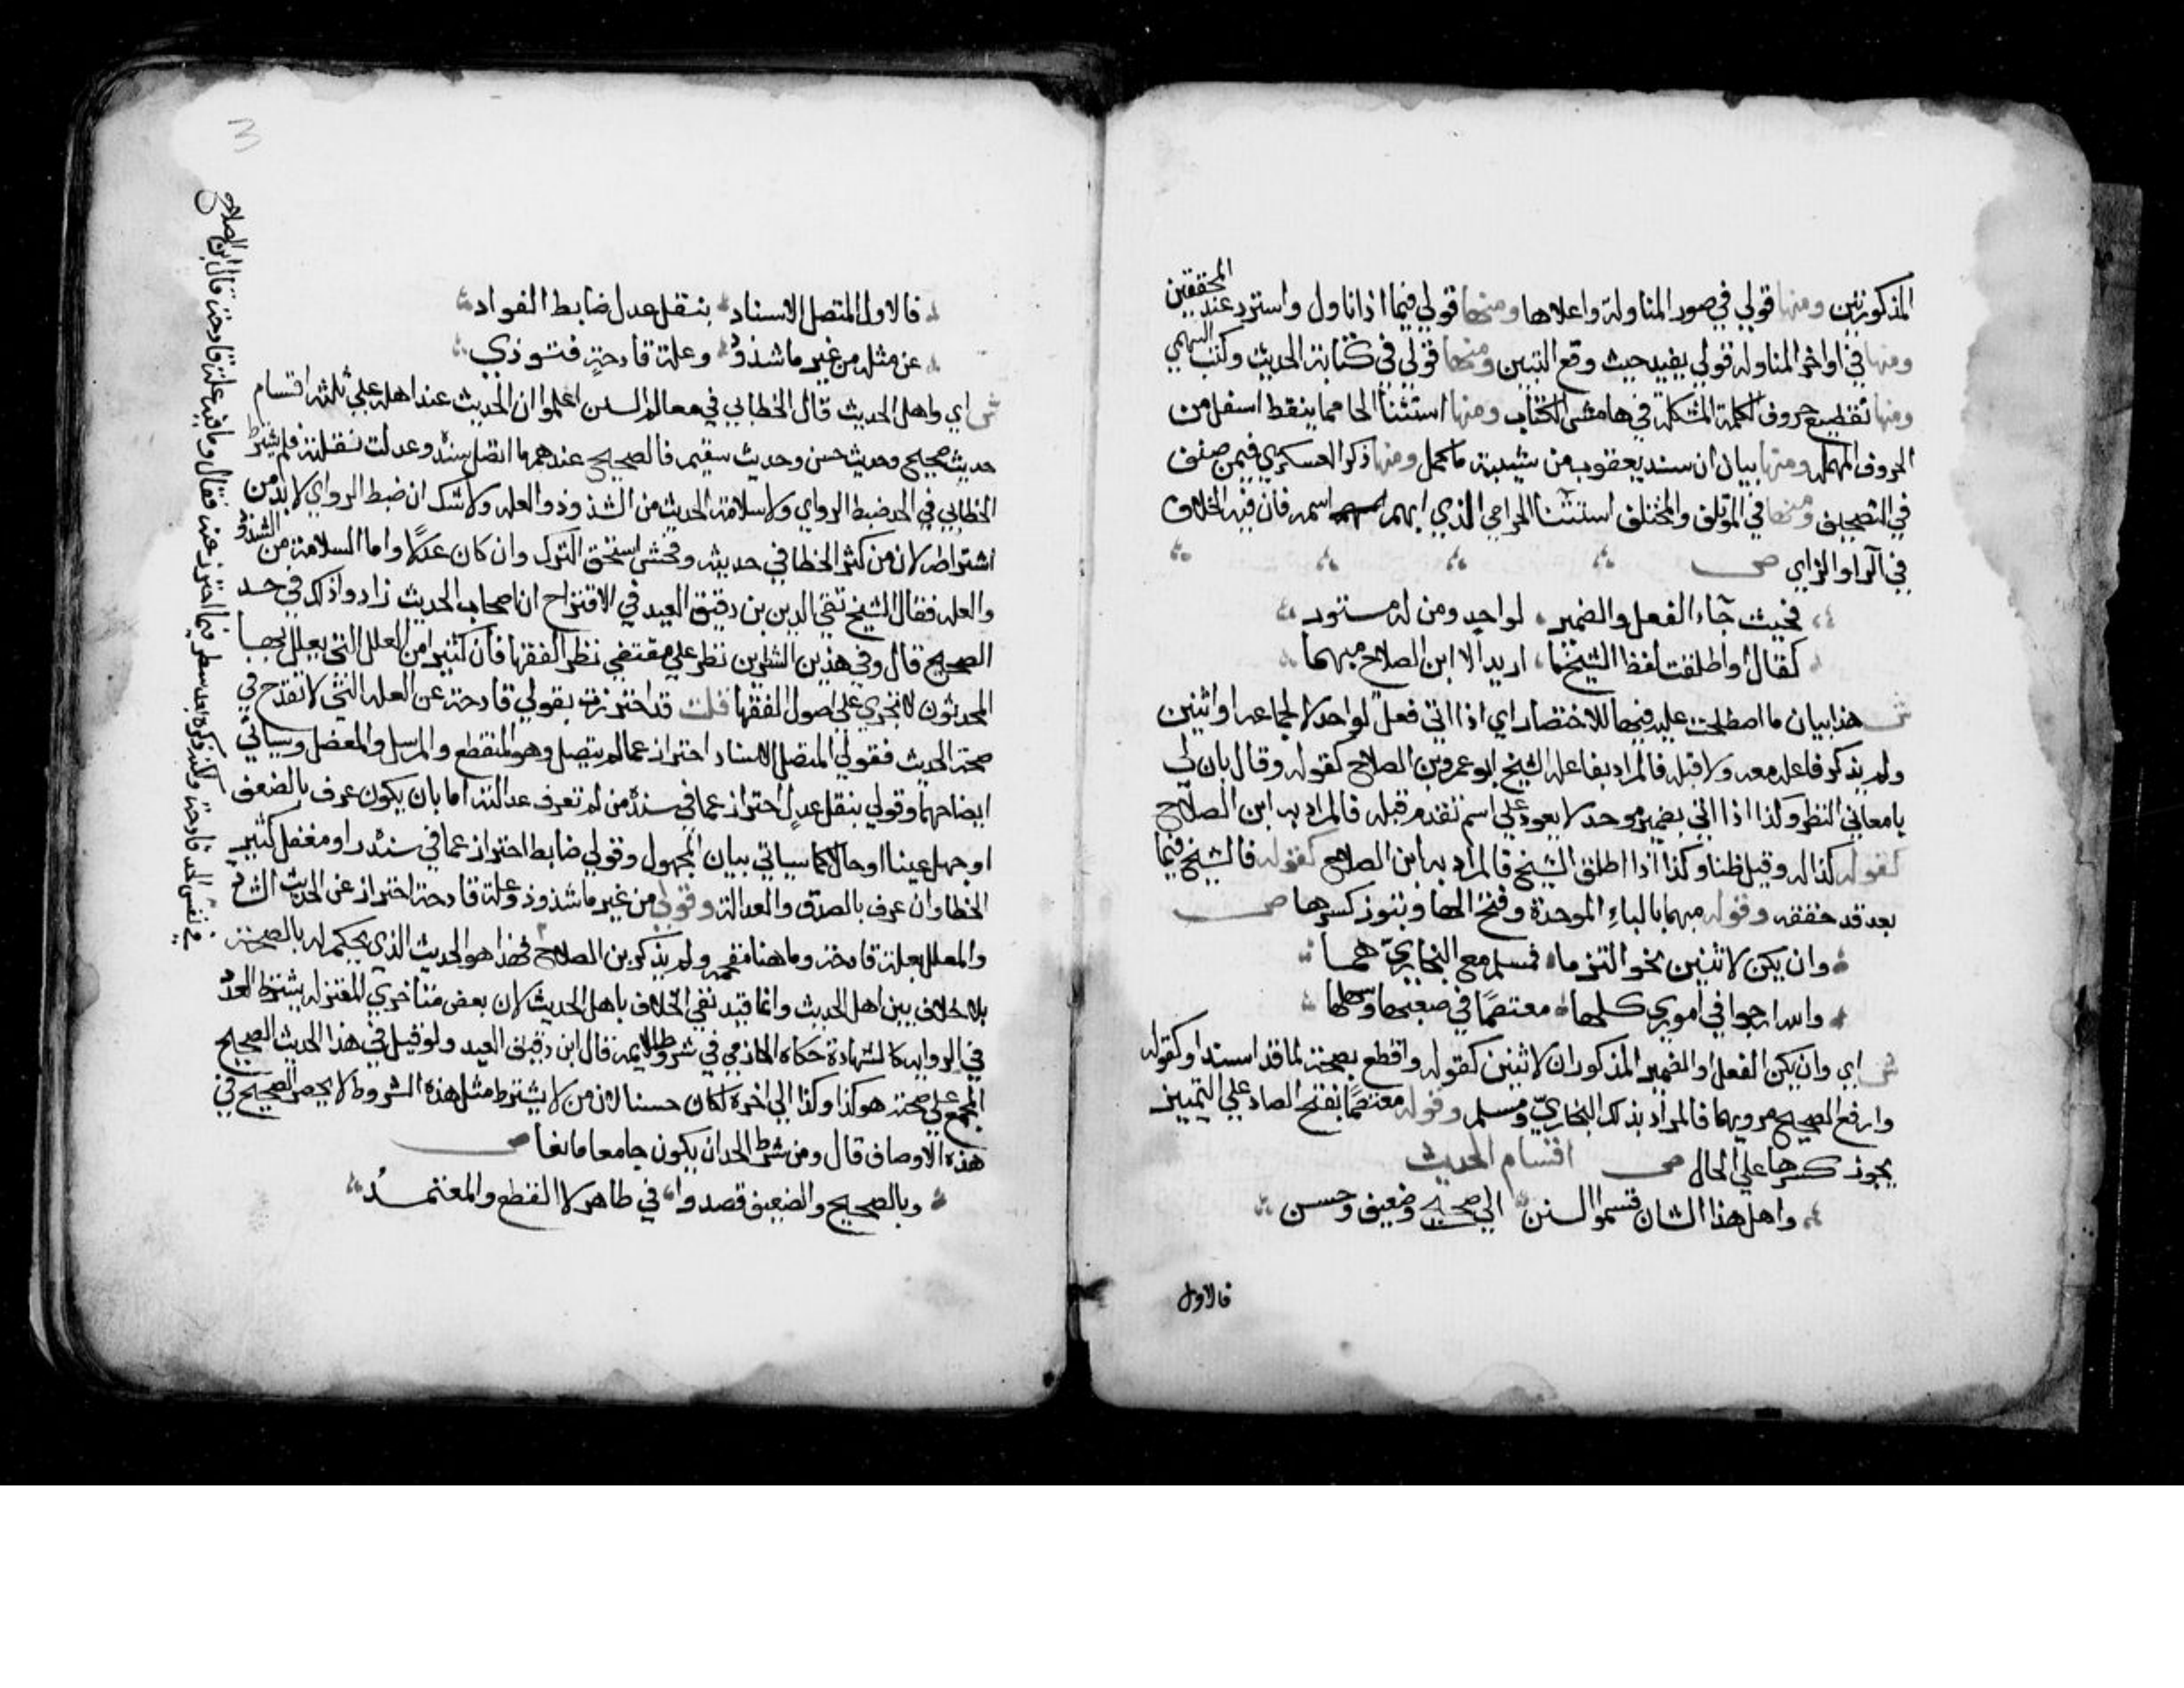 المذكورتين ومنها قولي في صور المناولة واعلاها ومنها قولي فيما اذا ناول واسترد عند المحققين
ومنها في اواخر المناوله قولي يفيد حيث وقع التبين ومنها قولي في كتابة الحديث وكتب السهمي
ومنها تقطيع حروف الكلمة المشكلة في هامش الكتاب ومنها استثنا الحا مما ينقط اسفل من
الحروف المهمله ومنها بيان ان سند يعقوب بن شيبة ما كمل ومنها ذكر العسكري فيمن صنف
في التصحيف ومنها في المؤتلف والمختلف استثنا الحزامي الذي ابهم اسمه فان فيه الخلاف
في الرا والزاي ص
فحيث جاء الفعل والضمير لواحد ومن له مستور
كقال او اطلقت لفظ الشيخ ما اريد الا ابن الصلاح مبهما
ش هذا بيان ما اصطلحت عليه فيها للاختصار اي اذا اتي فعل لواحد لا لجماعه او اثنين
ولم يذكر فاعله معه ولا قبله فالمراد بفاعله الشيخ ابو عمرو بن الصلاح كقوله وقال بان لي
بامعاني النظر وكذا اذا اتي بضمير موحد لا يعود علي اسم تقدم قبله فالمراد به ابن الصلاح
كقوله كذا له وقيل ظنا وكذا اذا اطلق الشيخ فالمراد به ابن الصلاح كقوله فالشيخ فيما
بعد قد حققه وقوله مبهما بالباء الموحدة وفتح الها ويجوز كسرها ص
وان يكن لاثنين نحو التزما فمسلم مع البخاريّ هما
والله ارجوا في اموري كلها معتصمًا في صعبها وسهلها
ش اي وان يكن الفعل او الضمير المذكوران لاثنين كقوله واقطع بصحة لما قد اسندا وكقوله
وارفع الصحيح مرويهما فالمراد بذلك البخاريّ ومسلم وقوله معتصمًا بفتح الصاد علي التمييز
يجوز كسرها علي الحال ص اقسام الحديث
واهل هذا الشان قسموا السنن الي صحيح وضعيف وحسن
فالاول
3
فالاول المتصل الاسناد بنقل عدل ضابط الفواد
عن مثله من غير ما شذوذ وعلة قادحةٍ فتوذي
ش اي واهل الحديث قال الخطابي في معالم السنن اعلموا ان الحديث عند اهله علي ثلثه اقسام
حديث صحيح وحديث حسن وحديث سقيم فالصحيح عندهم ما اتصل سنده وعدلت نقلته فلم يشترط
الخطابي في الحد ضبط الراوي ولا سلامة الحديث من الشذوذ والعله ولا شك ان ضبط الراوي لا بد من
اشتراطه لان من كثر الخطا في حديثه وفحش استحق الترك وان كان عدلًا واما السلامة من الشذوذ
والعله فقال الشيخ تقي الدين بن دقيق العيد في الاقتراح ان اصحاب الحديث زادوا ذلك في حد
الصحيح قال وفي هذين الشرطين نظر علي مقتضي نظر الفقها فان كثيرا من العلل التي يعلل بها
المحدثون لا تجري علي اصول الفقها قلت قد احترزت بقولي قادحة عن العله التي لا تقدح في
صحة الحديث فقولي المتصل الاسناد احتراز عما لم يتصل وهو المنقطع والمرسل والمعضل وسياتي
ايضاحها وقولي بنقل عدلٍ احتراز عما في سنده من لم تعرف عدالته اما بان يكون عرف بالضعف
او جهل عينا او حالا كما سياتي بيان المجهول وقولي ضابط احتراز عما في سنده راو مغفل كثير
الخطا وان عرف بالصدق والعدالة وقولي من غير ما شذوذ وعلة قادحة احتراز عن الحديث الشاذ
والمعلل بعلة قادحة وما هنا مقحمه ولم يذكر بن الصلاح فهذا هو الحديث الذي يحكم له بالصحة
بلا خلاف بين اهل الحديث وانما قيد نفي الخلاف باهل الحديث لان بعض متاخري المعتزله يشترط العدد
في الروايه كالشهادة حكاه الحازمي في شروط الايمه قال ابن دقيق العيد ولو قيل في هذا الحديث الصحيح
المجمع علي صحته هو كذا وكذا الي اخره لكان حسنا لان من لا يشترط مثل هذه الشروط لا يحصر الصحيح في
هذه الاوصاف قال ومن شرط الحد ان يكون جامعا مانعا ص
وبالصحيح والضعيف قصدوا في ظاهر لا القطع والمعتمدُ
في نفس الحد قادحة ولكنه ذكره بعد سطر فيما احترز عنه فقال وما فيه علة قادحة قال ابن الصلاح